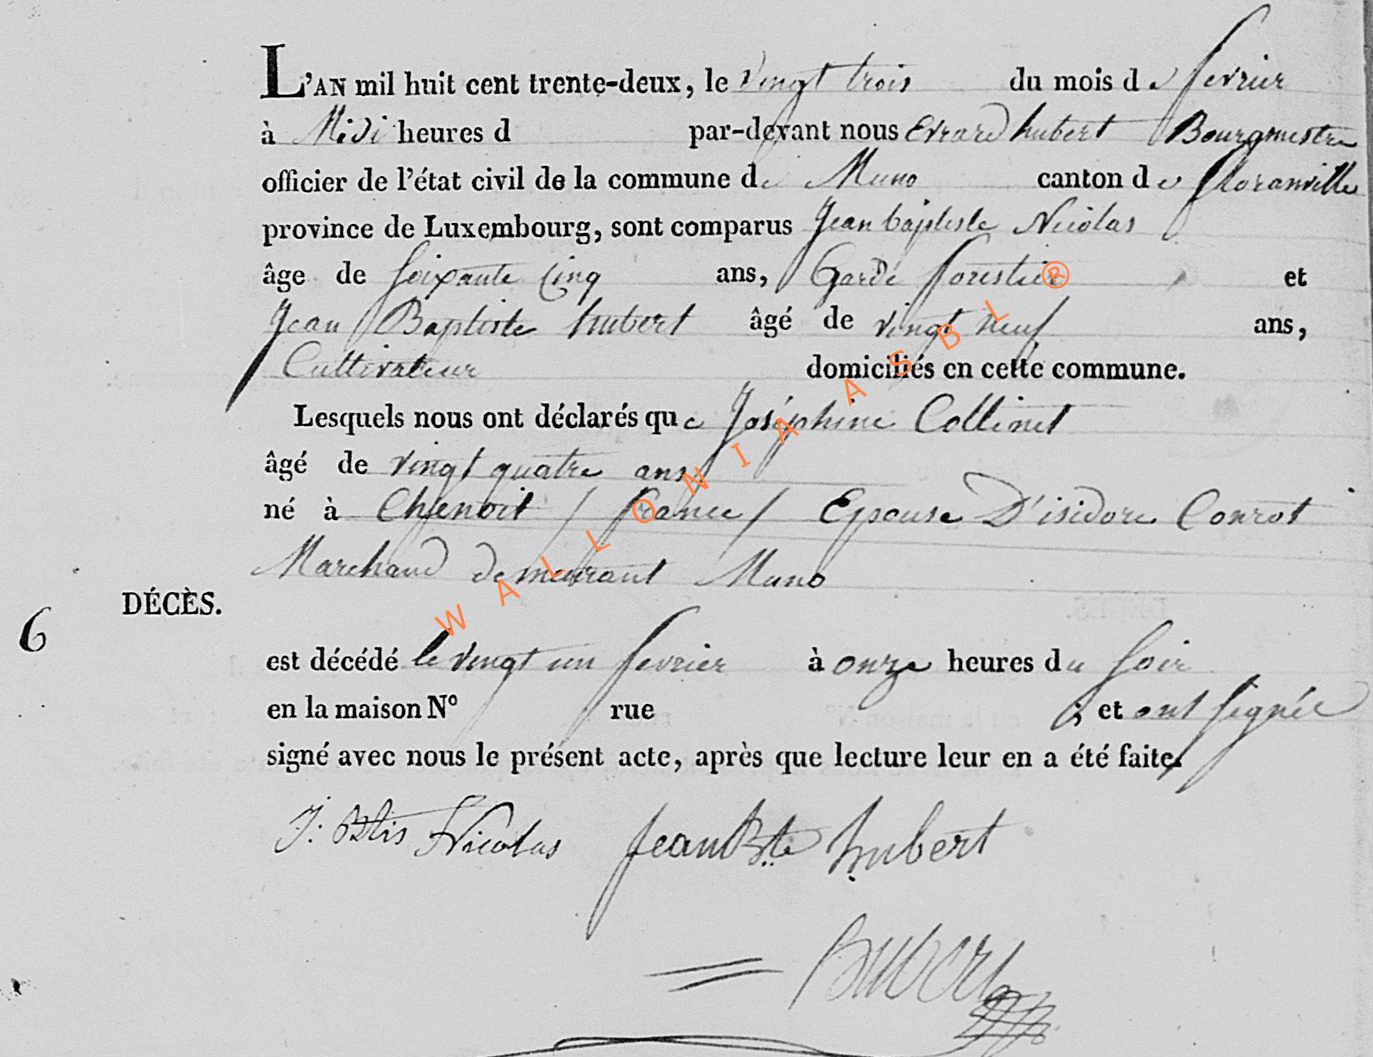 L'AN mil huit cent trente-deux, le vingt trois du mois de fevrier
à Midi heures d par-devant nous Evrard hubert Bourgmestre
officier de l'état civil de la commune de Muno canton de floranville
province de Luxembourg, sont comparus Jean baptiste Nicolas
âge de soixante cinq ans, Garde forestier et
Jean Baptiste hubert âgé de vingt neuf ans,
Cultivateur domiciliés en cette commune.
Lesquels nous ont déclarés que Joséphine Collinet
âgé de vingt quatre ans
né à Chenoit / france / Epouse D'isidore Conrot
Marchand demeurant Muno
DÉCÈS.
6
est décédé le vingt un fevrier à onze heures du soir
en la maison N° rue ; et ont signée
signé avec nous le présent acte, après que lecture leur en a été faite.
J: Btis Nicolas Jean Bte hubert
hubert
WALLONIA ASBL ®